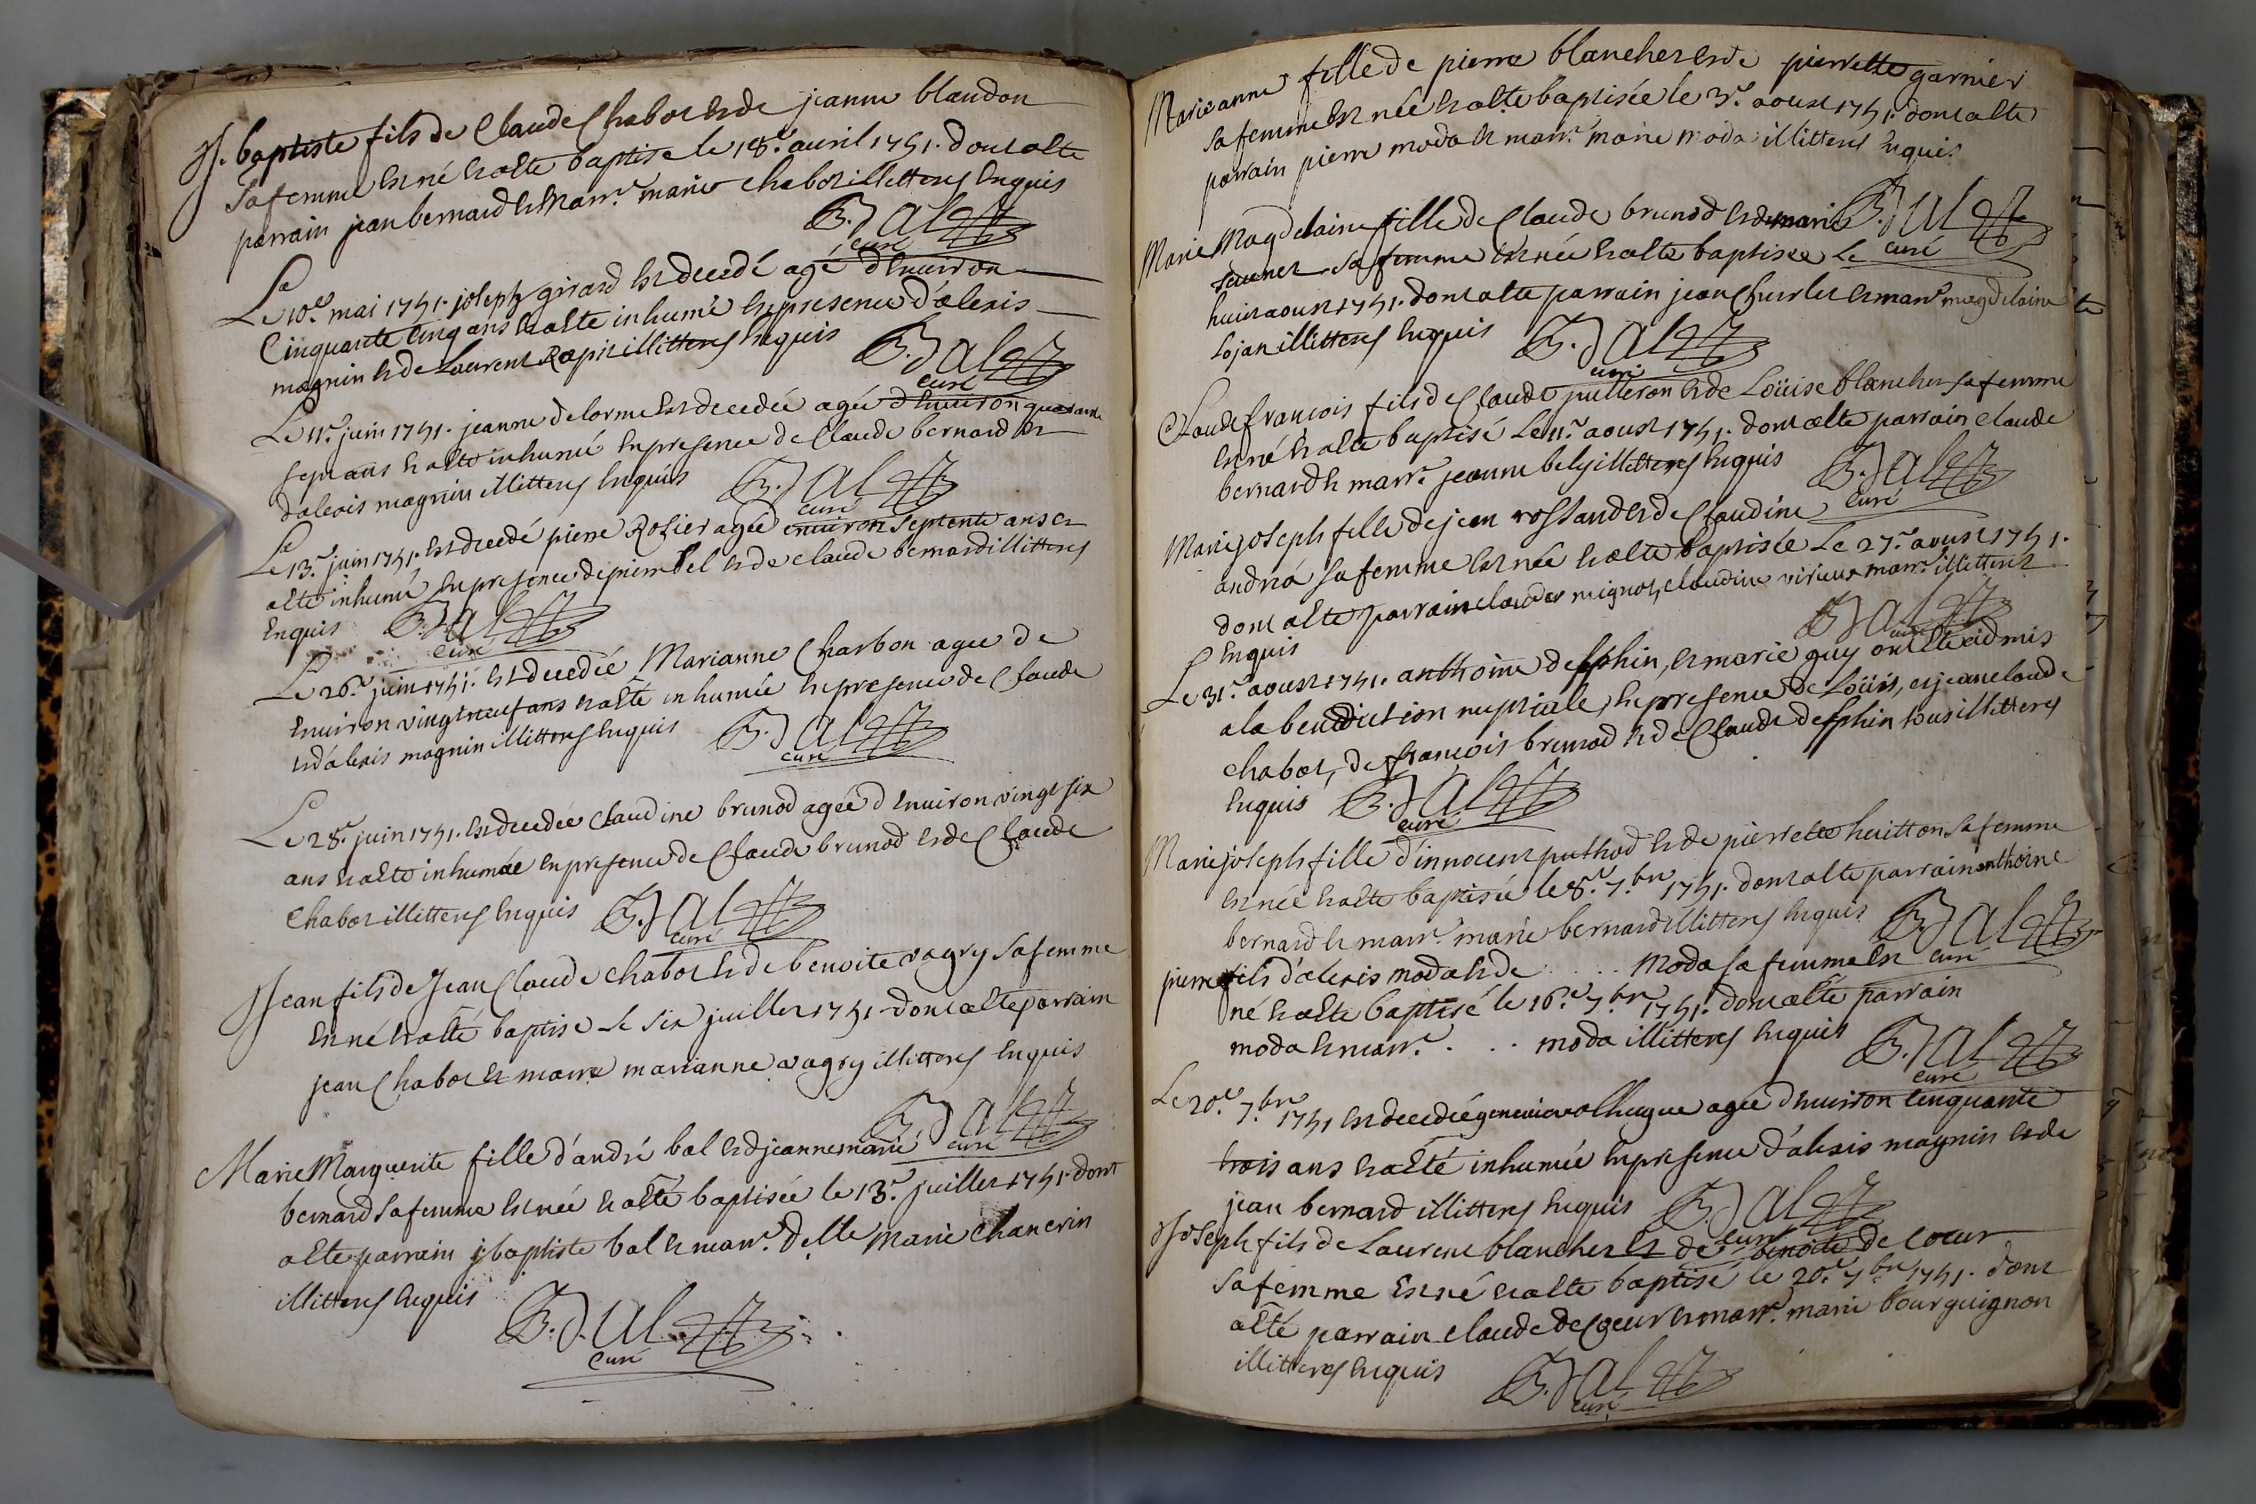 J. baptiste fils de Claude Chabot et de jeanne blandon
Sa femme est né et a esté baptisé le 18.e avril 1751. dont a esté
parrain jean bernard et marr.e marie chabot illitterés enquis
B. Dal
curé
Le 10.e mai 1751. joseph girard est decedé agé d'environ
Cinquante cinq ans et a esté inhumé en presence d'alexis
magnin et de Laurent Rapit illitterés enquis
B. Dal
curé
Le 11.e juin 1751. jeanne delorme est decedée agée d'environ quarante
sept ans et a esté inhumé en presence de Claude bernard et
d'alexis magnin illitterés enquis
B. Dal
curé
Le 13.e juin 1751. est decedé pierre Rosier agée environ septente ans et
a esté inhumé en presence de pierre bel et de claude bernard illitterés
enquis
B. Dal
curé
Le 26.e juin 1751. est decedée Marianne Charbon agée de
environ vingt neuf ans et a esté inhumée en presence de Claude
et d'alexis magnin illitterés enquis
B. Dal
curé
Le 28.e juin 1751. est decedée Claudine brunod agée d'environ vingt six
ans et a esté inhumée en presence de Claude brunod et de Claude
Chabot illitterés enquis
B. Dal
curé
Jean fils de Jean Claude chabot et de benoite vagry sa femme
est né et a esté baptisé le six juillet 1751. dont a esté parrain
jean Chabot et marre marianne vagry illitterés enquis
B. Dal
curé
Marie Marguerite fille d'andré bal et d jeanne marie
bernard sa femme est née et a esté baptisée le 13.e juillet 1751. dont
a esté parrain j. baptiste bal et marr.e delle Marie Chanerin
illitterés enquis
B. Dal
curé
Marieanne fille de pierre blanchet et de pierrette garnier
sa femme est née et a esté baptisée le 3.e aoust 1751. dont a esté
parrain pierre moda et marr.e marie moda illitterés enquis
B. Dal
curé
Marie Magdelaine fille de Claude brunod et de marie
sa femme est née et a esté baptisée Le
huit aoust 1751. dont a esté parrain jean Charlet et marr.e magdelaine
Lojan illitterés enquis
B. Dal
curé
Claude francois fils de Claude pulleron et de Loüise blanchet sa femme
est né et a esté baptisé Le 11.e aoust 1751. dont a esté parrain claude
bernard et marr.e jeanne bely illitterés enquis
B. Dal
curé
Marie joseph fille de jean rossand et de Claudine
andréa sa femme est née et a esté baptisée Le 27.e aoust 1751.
dont a esté parrain claude mignot, claudine virieux marr.e illitterés
enquis
B. Dal
curé
Le 31.e aoust 1751. anthoine delphin, et marie guy ont esté admis
a la benediction nuptiale, en presence de Loüis, et jeanclaude
chabot, de françois brunod et de Claude delphin tous illitterés
enquis
B. Dal
curé
Marie joseph fille d'innocent puthod et de pierrette huitton sa femme
est née et a esté baptisée le 8.e 7.bre 1751. dont a esté parrain anthoine
bernard et marr.e marie bernard illitterés enquis
B. Dal
curé
pierre fils d'alexis moda et de . . . . Moda sa femme est
né et a esté baptisé le 16.e 7.bre 1751. dont a esté parrain
moda et marr.e . . . moda illitterés enquis
B. Dal
curé
Le 20.e 7.bre 1751 est decedée agée d'environ cinquante
trois ans et a esté inhumée en presence d'alexis magnin et de
jean bernard illitterés enquis
B. Dal
curé
Joseph fils de Laurent blanchet et de benoite de coeur
sa femme est né et a esté baptisé le 20.e 7.bre 1751. dont
a esté parrain claude de coeur et marr.e marie bourguignon
illitterés enquis
B. Dal
curé